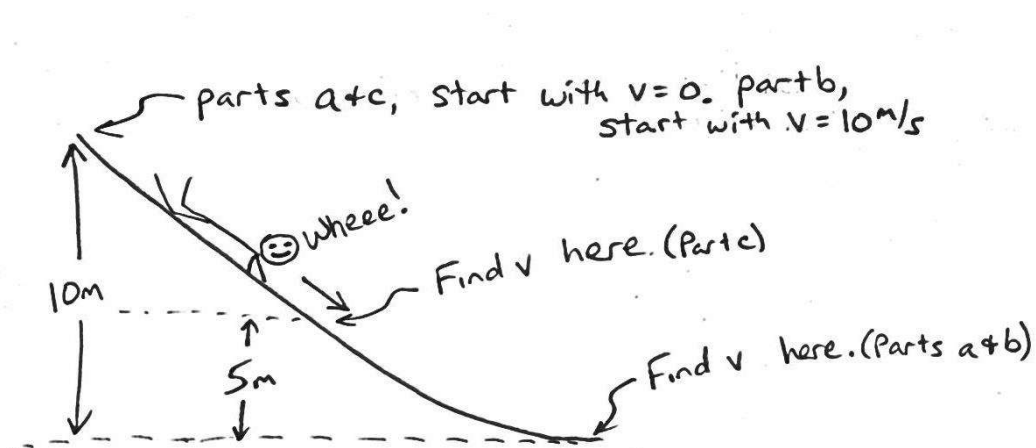 parts a+c, start with v=0. part b,
start with v=10 m/s
Wheee!
Find v here. (Part c)
10m
5m
Find v here. (Parts a+b)